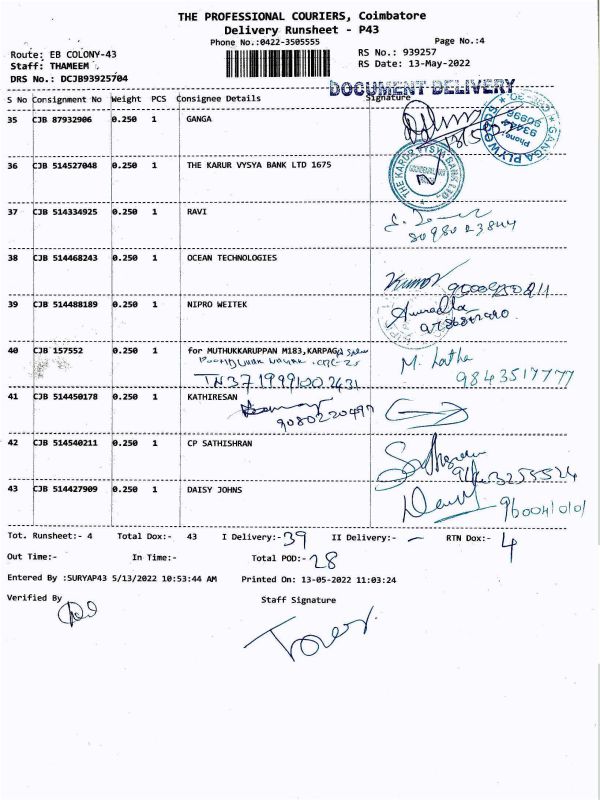 THE PROFESSIONAL COURIERS, Coimbatore
Delivery Runsheet - P43
Phone No.:0422-3505555
Page No.:4
Route: EB COLONY-43
RS No.: 939257
Staff: THAMEEM
RS Date: 13-May-2022
DRS No.: DCJB93925704
DOCUMENT DELIVERY
S No Consignment No Weight PCS Consignee Details Signature
35 CJB 87932906 0.250 1 GANGA
GANGA PLYWOODS
Phone
36 CJB 514527048 0.250 1 THE KARUR VYSYA BANK LTD 1675
THE KARUR VYSYA BANK LTD.
37 CJB 514334925 0.250 1 RAVI
38 CJB 514468243 0.250 1 OCEAN TECHNOLOGIES
Kumar
39 CJB 514488189 0.250 1 NIPRO WEITEK
Anuradha
40 CJB 157552 0.250 1 for MUTHUKKARUPPAN M183,KARPAG
TN37 19991002431
M. Latha
9843517777
41 CJB 514450178 0.250 1 KATHIRESAN
9080220497
42 CJB 514540211 0.250 1 CP SATHISHRAN
43 CJB 514427909 0.250 1 DAISY JOHNS
9600410101
Tot. Runsheet:- 4 Total Dox:- 43 I Delivery:- 39 II Delivery:- - RTN Dox:- 4
Out Time:- In Time:- Total POD:- 28
Entered By :SURYAP43 5/13/2022 10:53:44 AM Printed On: 13-05-2022 11:03:24
Verified By
Staff Signature